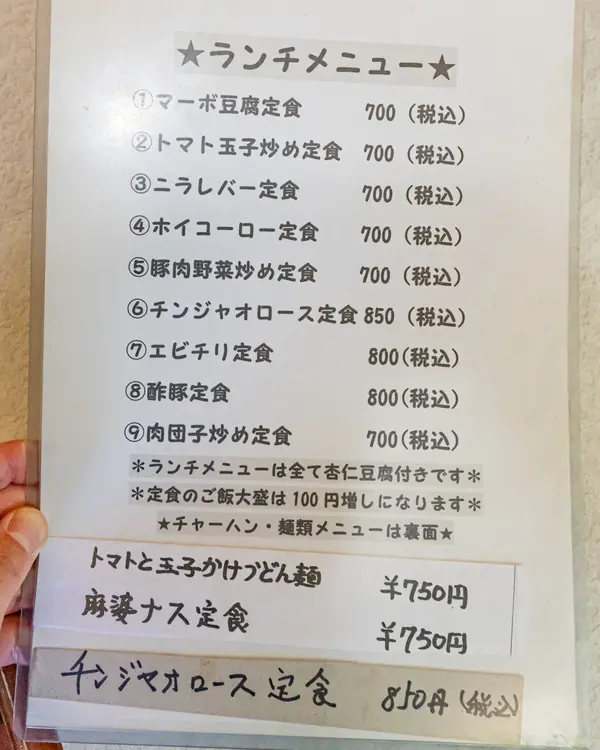 ★ランチメニュー★
①マーボ豆腐定食 700（税込）
②トマト玉子炒め定食 700（税込）
③ニラレバー定食 700（税込）
④ホイコーロー定食 700（税込）
⑤豚肉野菜炒め定食 700（税込）
⑥チンジャオロース定食 850（税込）
⑦エビチリ定食 800(税込)
⑧酢豚定食 800(税込)
⑨肉団子炒め定食 700(税込)
＊ランチメニューは全て杏仁豆腐付きです＊
＊定食のご飯大盛は100円増しになります＊
★チャーハン・麺類メニューは裏面★
トマトと玉子かけうどん麺 ¥750円
麻婆ナス定食 ¥750円
チンジャオロース定食 850円(税込)